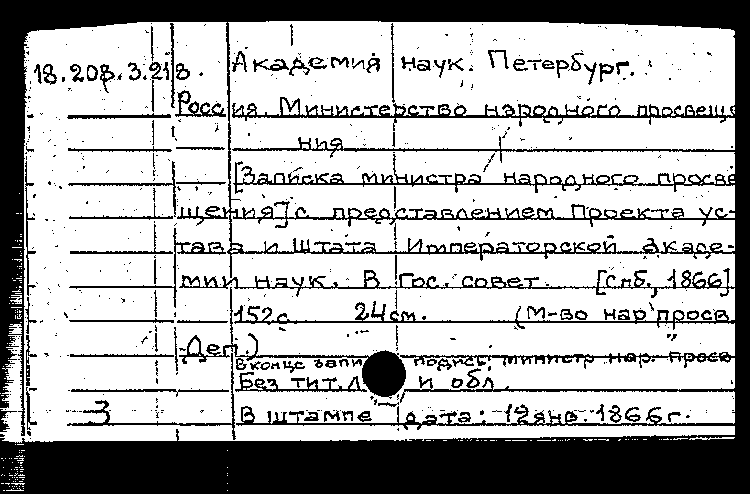 18.208.3.218. Академия наук. Петербург.
Россия. Министерство народного просвеще
ния
[Записка министра народного просве
щения] с представлением Проекта ус-
тава и Штата Императорской Акаде-
мии наук. В Гос. совет. [Спб., 1866]
152с. 24см. (М-во нар. просв.
Деп.)
В конце запи подпись: министр нар. просв
Без тит. л и обл.
3 В штампе дата: 12 янв. 1866г.